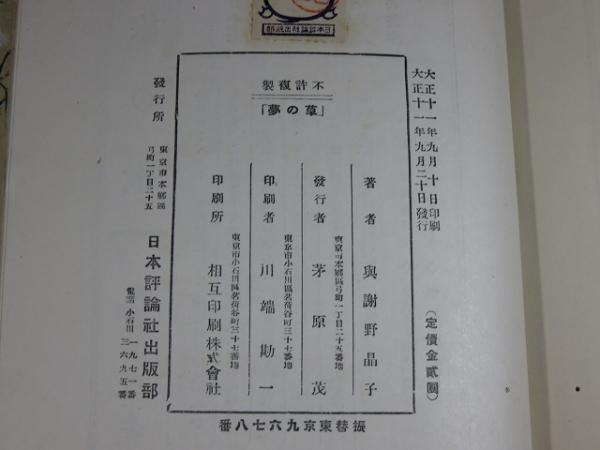 日本評論社出版部
大正十一年九月十日印刷
大正十一年九月二十日發行
(定價金貳圓)
不許復製
「草の夢」
著者 與謝野晶子
東京市本鄕區弓町一丁目二十五
發行者 茅原茂
東京市小石川區茗荷谷町三十七番地
印刷者 川端勘一
東京市小石川區茗荷谷町三十七番地
印刷所 相互印刷株式會社
發行所
東京市本鄕區
弓町一丁目二十五
日本評論社出版部
電話 小石川 一九七一番
三六九五番
振替東京九六七八番